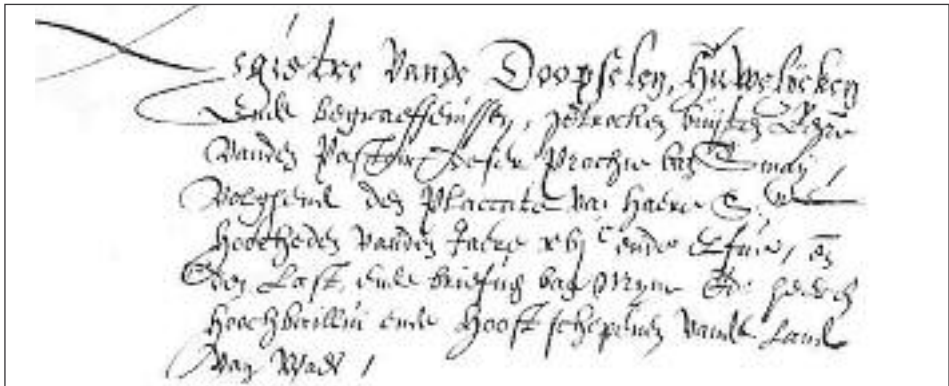 Registre vande Doopselen, Huwelicken
Ende begraeffenissen, getrocken buijten
vanden Pastoir deser Prochie van
Volghende den Placcate van haere
hoocheden vanden Jaere xvjc ende Elfve, en
Last ende briefing van Myne
hoochbailliu ende hooftschepenen vande Lande
van Waes /